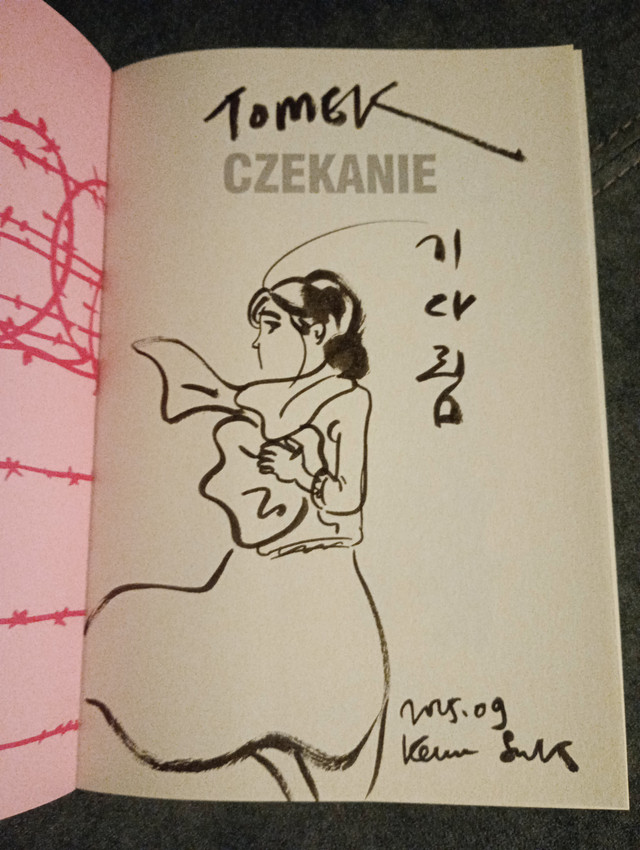 TOMEK
CZEKANIE
기
다
림
2025.09
Keum Suk